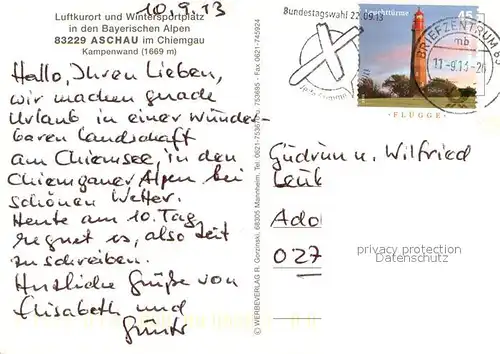 10.9.13
Luftkurort und Wintersportplatz
in den Bayerischen Alpen
83229 ASCHAU im Chiemgau
Kampenwand (1669 m)
Hallo, Ihren Lieben,
wir machen gerade
Urlaub in einer wunder-
baren Landschaft
am Chiemsee, in den
Chiemgauer Alpen bei
schönen Wetter.
Heute am 10. Tag
regnet es, also Zeit
zu schreiben.
Herzliche Grüße von
Elisabeth und
Günter
© WERBEVERLAG R. Gorzinski, 68305 Mannheim, Tel. 0621-753674 u. 753685 - Fax 0621-745924
Bundestagswahl 22.09.13
Leuchttürme 45
FLÜGGE
BRIEFZENTRUM
mb
11.-9.13-20
Gudrun u. Wilfried
Leuk
Ado
027
privacy protection
Datenschutz